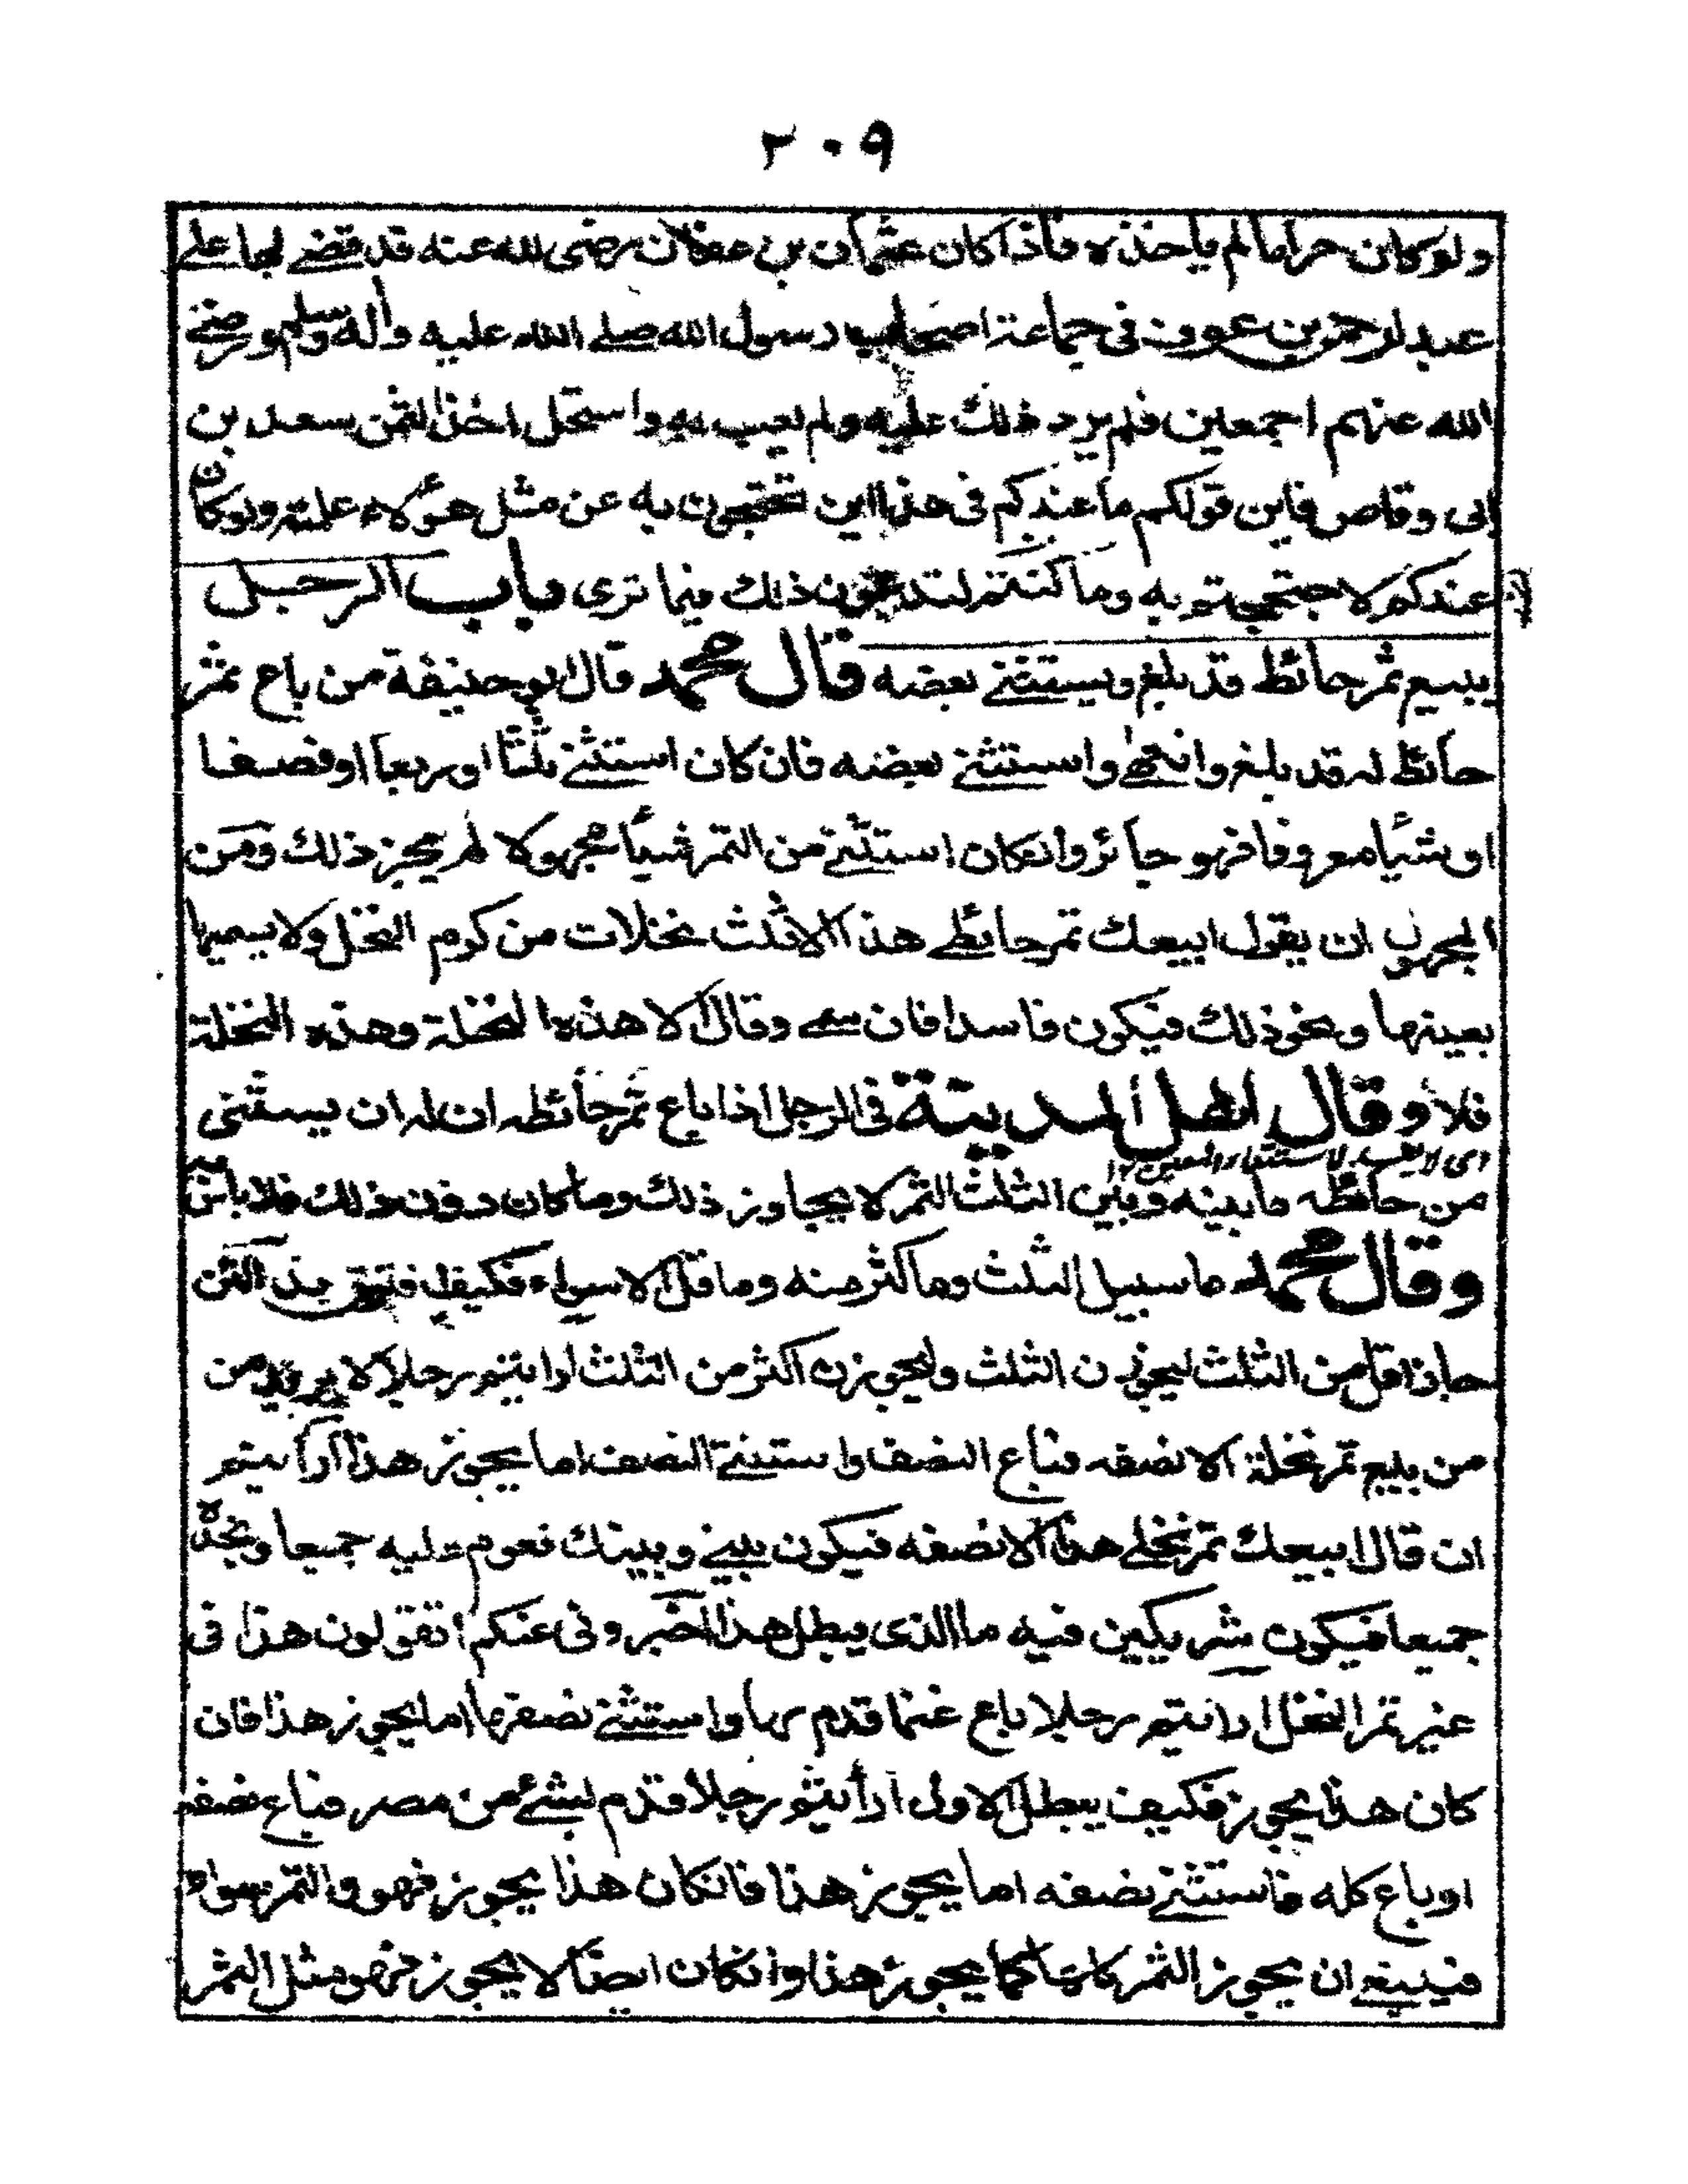 ٢٠٩
ولو كان حراما لم ياخذه فاذا كان عثمان بن عفان رضى الله عنه قد قضے بها علے
عبد الرحمن بن عوف فى جماعة اصحاب رسول الله صلے الله عليه واله وسلم ورضے
الله عنهم اجمعين فلم يرد ذلك عليه ولم يعب به واستحل اخذ الثمن سعد بن
ابى وقاص فاين قولكم ما عندكم فى هذا اين تحتجون به عن مثل هؤلاء علمته ولو كان
عندكم لاحتججتم به وما كنتم لتدعون ذلك فيما نرى باب الرجل
يبيع ثمر حائط قد بلغ ويستثنے بعضه قال محمد قال ابو حنيفة من باع ثمر
حائط له قد بلغ وانتهى واستثنے بعضه فان كان استثنے ثلثا او ربعا او نصفا
او شيئا معروفا فهو جائز وانكان استثنے من الثمر شيئا مجهولا لم يجز ذلك ومن
المجهول ان يقول ابيعك ثمر حائطے هذا الا ثلث نخلات من كرم النخل ولا يسميها
بعينها ونحو ذلك فيكون فاسدا فان سمے وقال الا هذه النخلة وهذه النخلة
فلا وقال اهل المدينة فى الرجل اذا باع ثمر حائطه ان له ان يستثنى
من حائطه ما بينه وبين الثلث الثمر لا يجاوز ذلك وما كان دون ذلك فلا باس
وقال محمد ما سبيل الثلث وما اكثر منه وما قل الا سواء فكيف
جاز اقل من الثلث ليجوزن الثلث وليجوزن اكثر من الثلث ارايتم رجلا لا يريد من
من يبيع ثمر نخلة الا نصفه فباع النصف واستثنے النصف اما يجوز هذا ارأيتم
ان قال ابيعك ثمر نخلے هذا الا نصفه فيكون بينے وبينك نقوم عليه جميعا ونجده
جميعا فيكون شريكين فيه ما الذى يبطل هذا اخبرونى عنكم اتقولون هذا فى
غير ثمر النخل ارايتم رجلا باع غنما قدم بها واستثنے نصفها اما يجوز هذا فان
كان هذا يجوز فكيف يبطل الاول ارأيتم رجلا قدم لبشئ من مصر فباع نصفه
او باع كله فاستثنے نصفه اما يجوز هذا فانكان هذا يجوز فهو والثمر سواء
فينبغے ان يجوز الثمر كما يجوز هذا وانكان ايضا لا يجوز فهو مثل الثمر